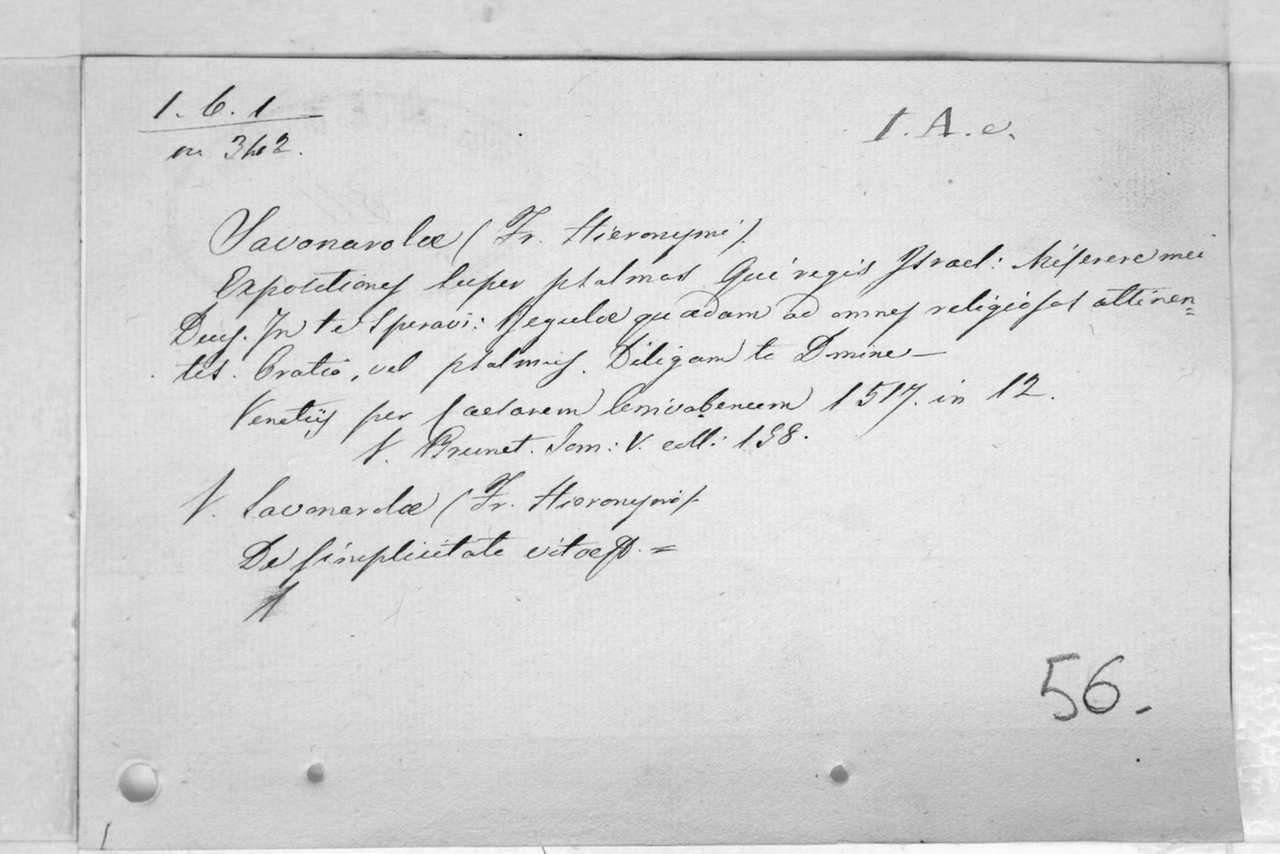 1. 6. 1
in 342.
I. A. c.
Savonarolæ (Fr. Hieronymi).
Expositiones super psalmos Qui regis Ysrael: Miserere mei
Deus. In te Speravi: Regulæ quædam ad omnes religiosos attinen=
tes. Oratio, vel psalmus. Diligam te Dmine—
Venetijs per 1517. in 12.
V. Brunet. Tom: V. coll: 158.
V. Savonarolæ (Fr. Hieronymi).
De simplicitate vitæ =
56.